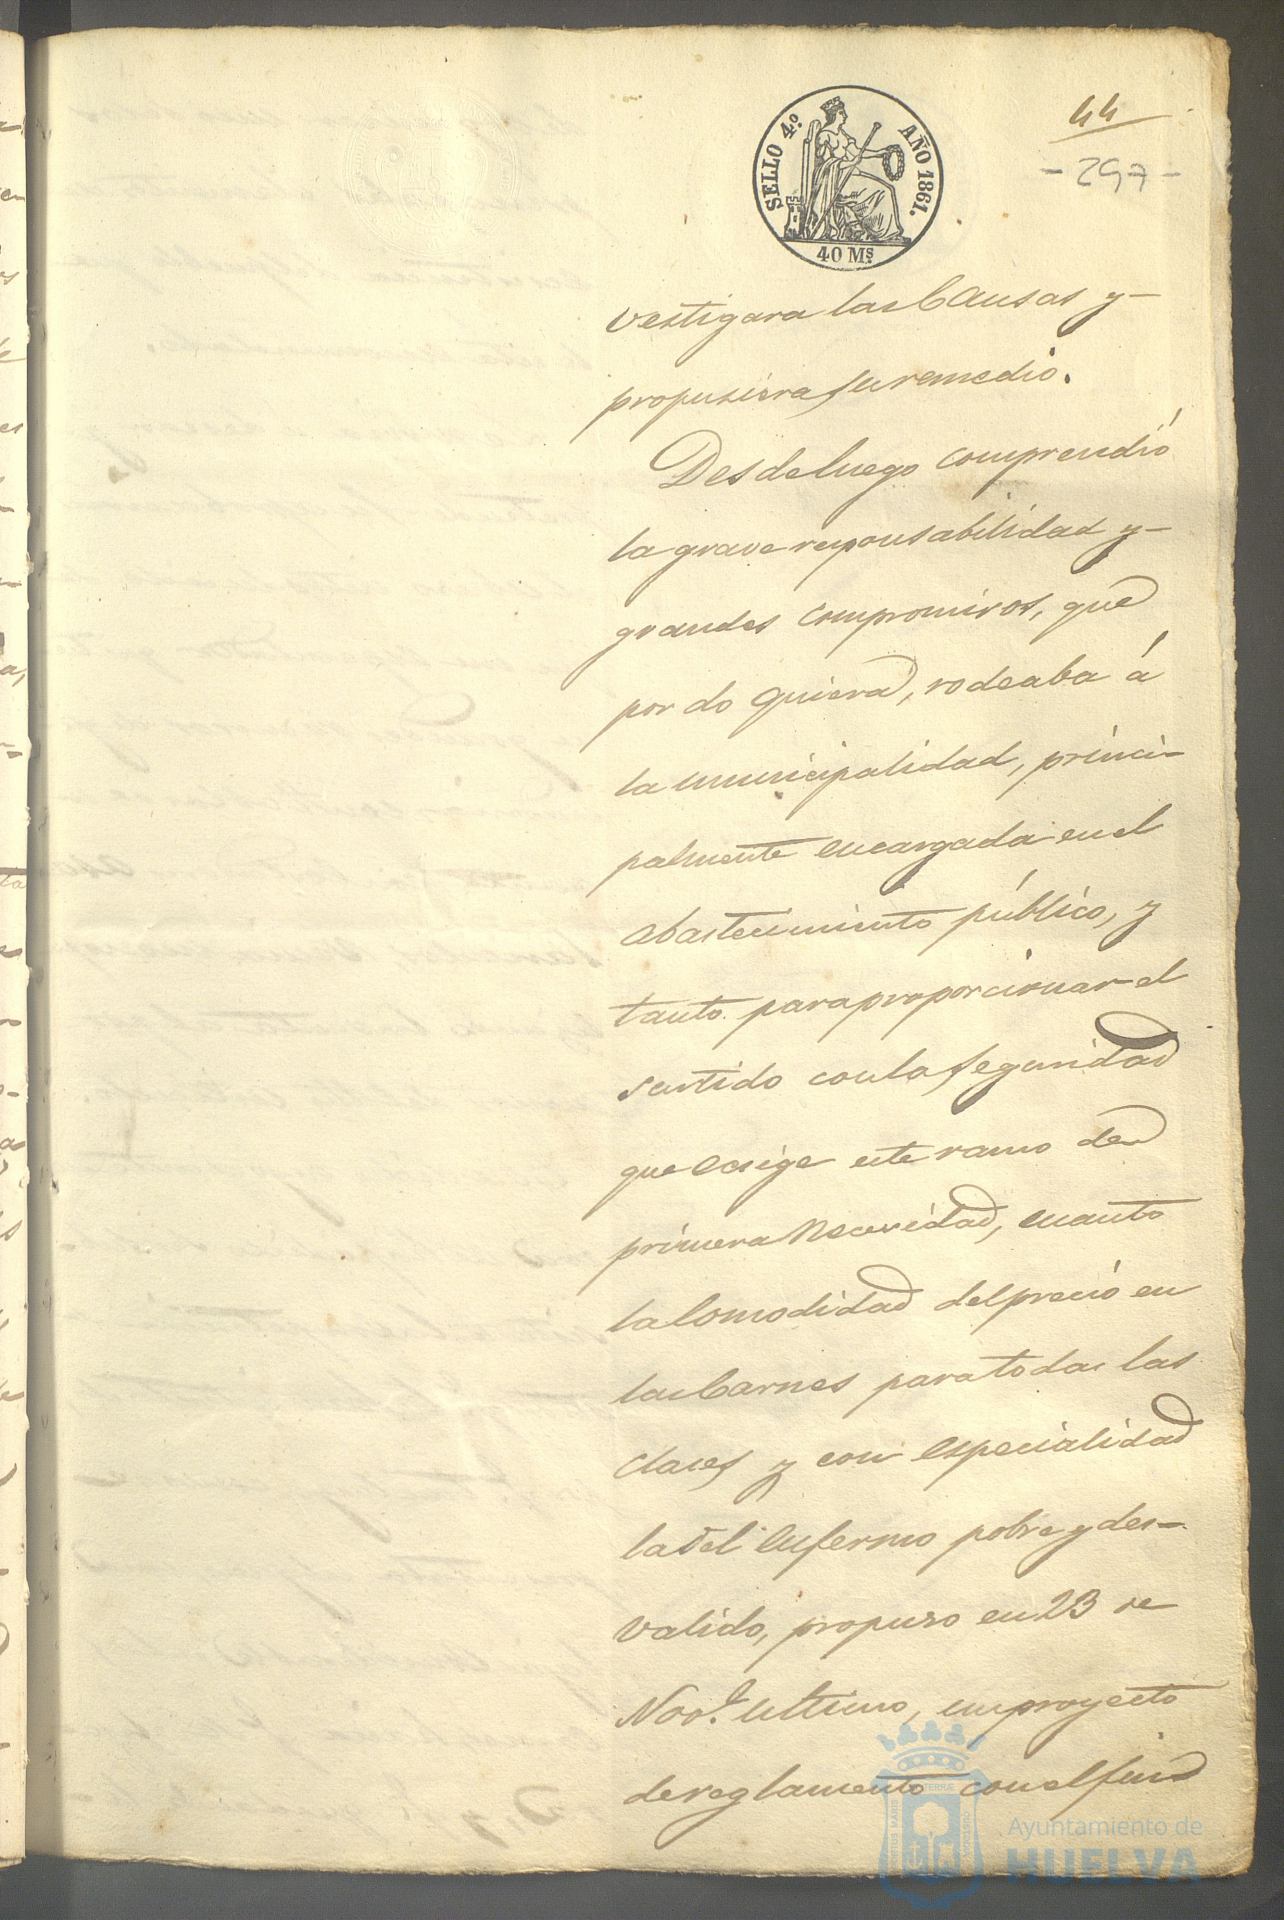 44
- 297 -
SELLO 4.º AÑO 1861.
40 Ms
vestigara las Causas y-
propusiera su remedio.
Desde luego comprendió
la grave responsabilidad y-
grandes compromisos, que
por do quiera, rodeaba á
la municipalidad, princi-
palmente encargada en el
abastecimiento público, y
tanto para proporcionar el
surtido con la seguridad
que ecsige este ramo de
primera necesidad, cuanto
la Comodidad del precio en
las Carnes para todas las
clases y con especialidad
la del enfermo pobre y des-
valido, propuso en 23 de
Novᵉ. ultimo, un proyecto
de reglamento con el fin
Ayuntamiento de
HUELVA